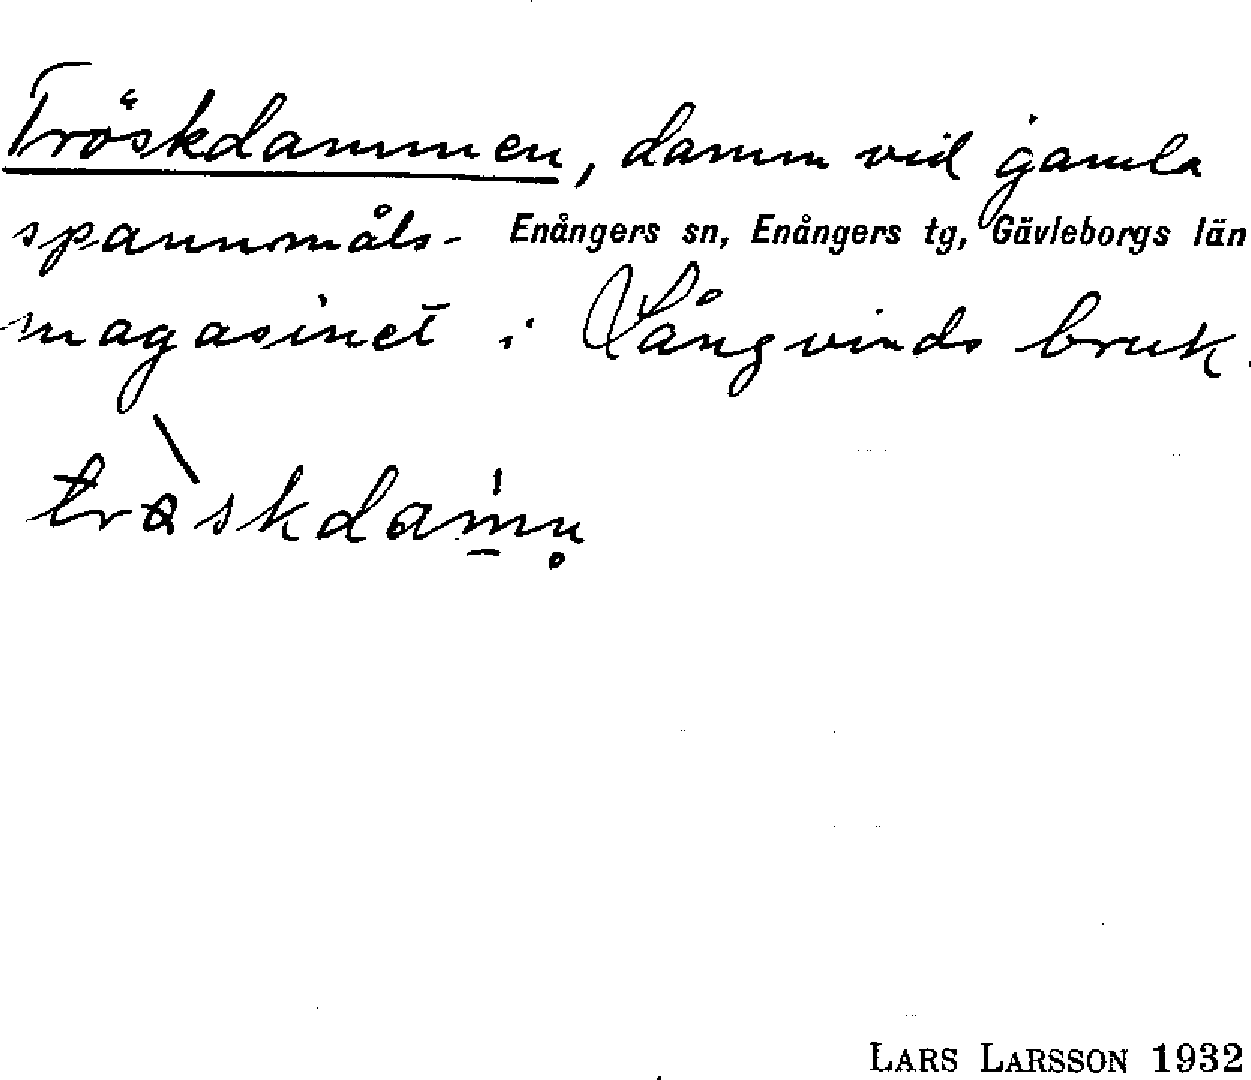 Tröskdammen, damm vid gamla
spannmåls- Enångers sn, Enångers tg, Gävleborgs län
magasinet i Långvinds bruk.
tròskdam̠n̥
LARS LARSSON 1932